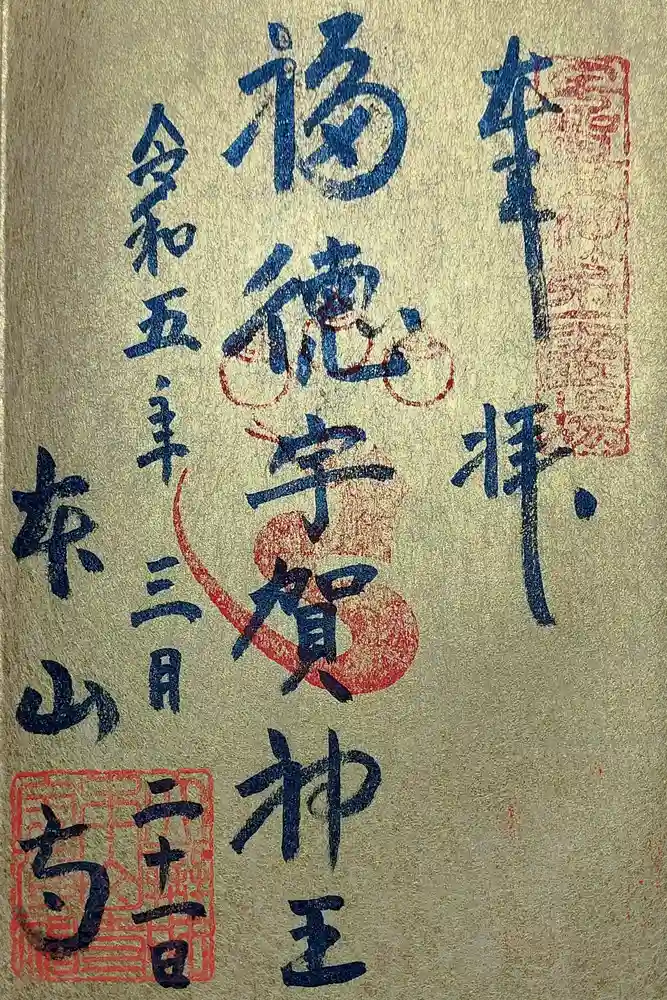 奉拝
福徳宇賀神王
令和五年三月二十一日
本山寺